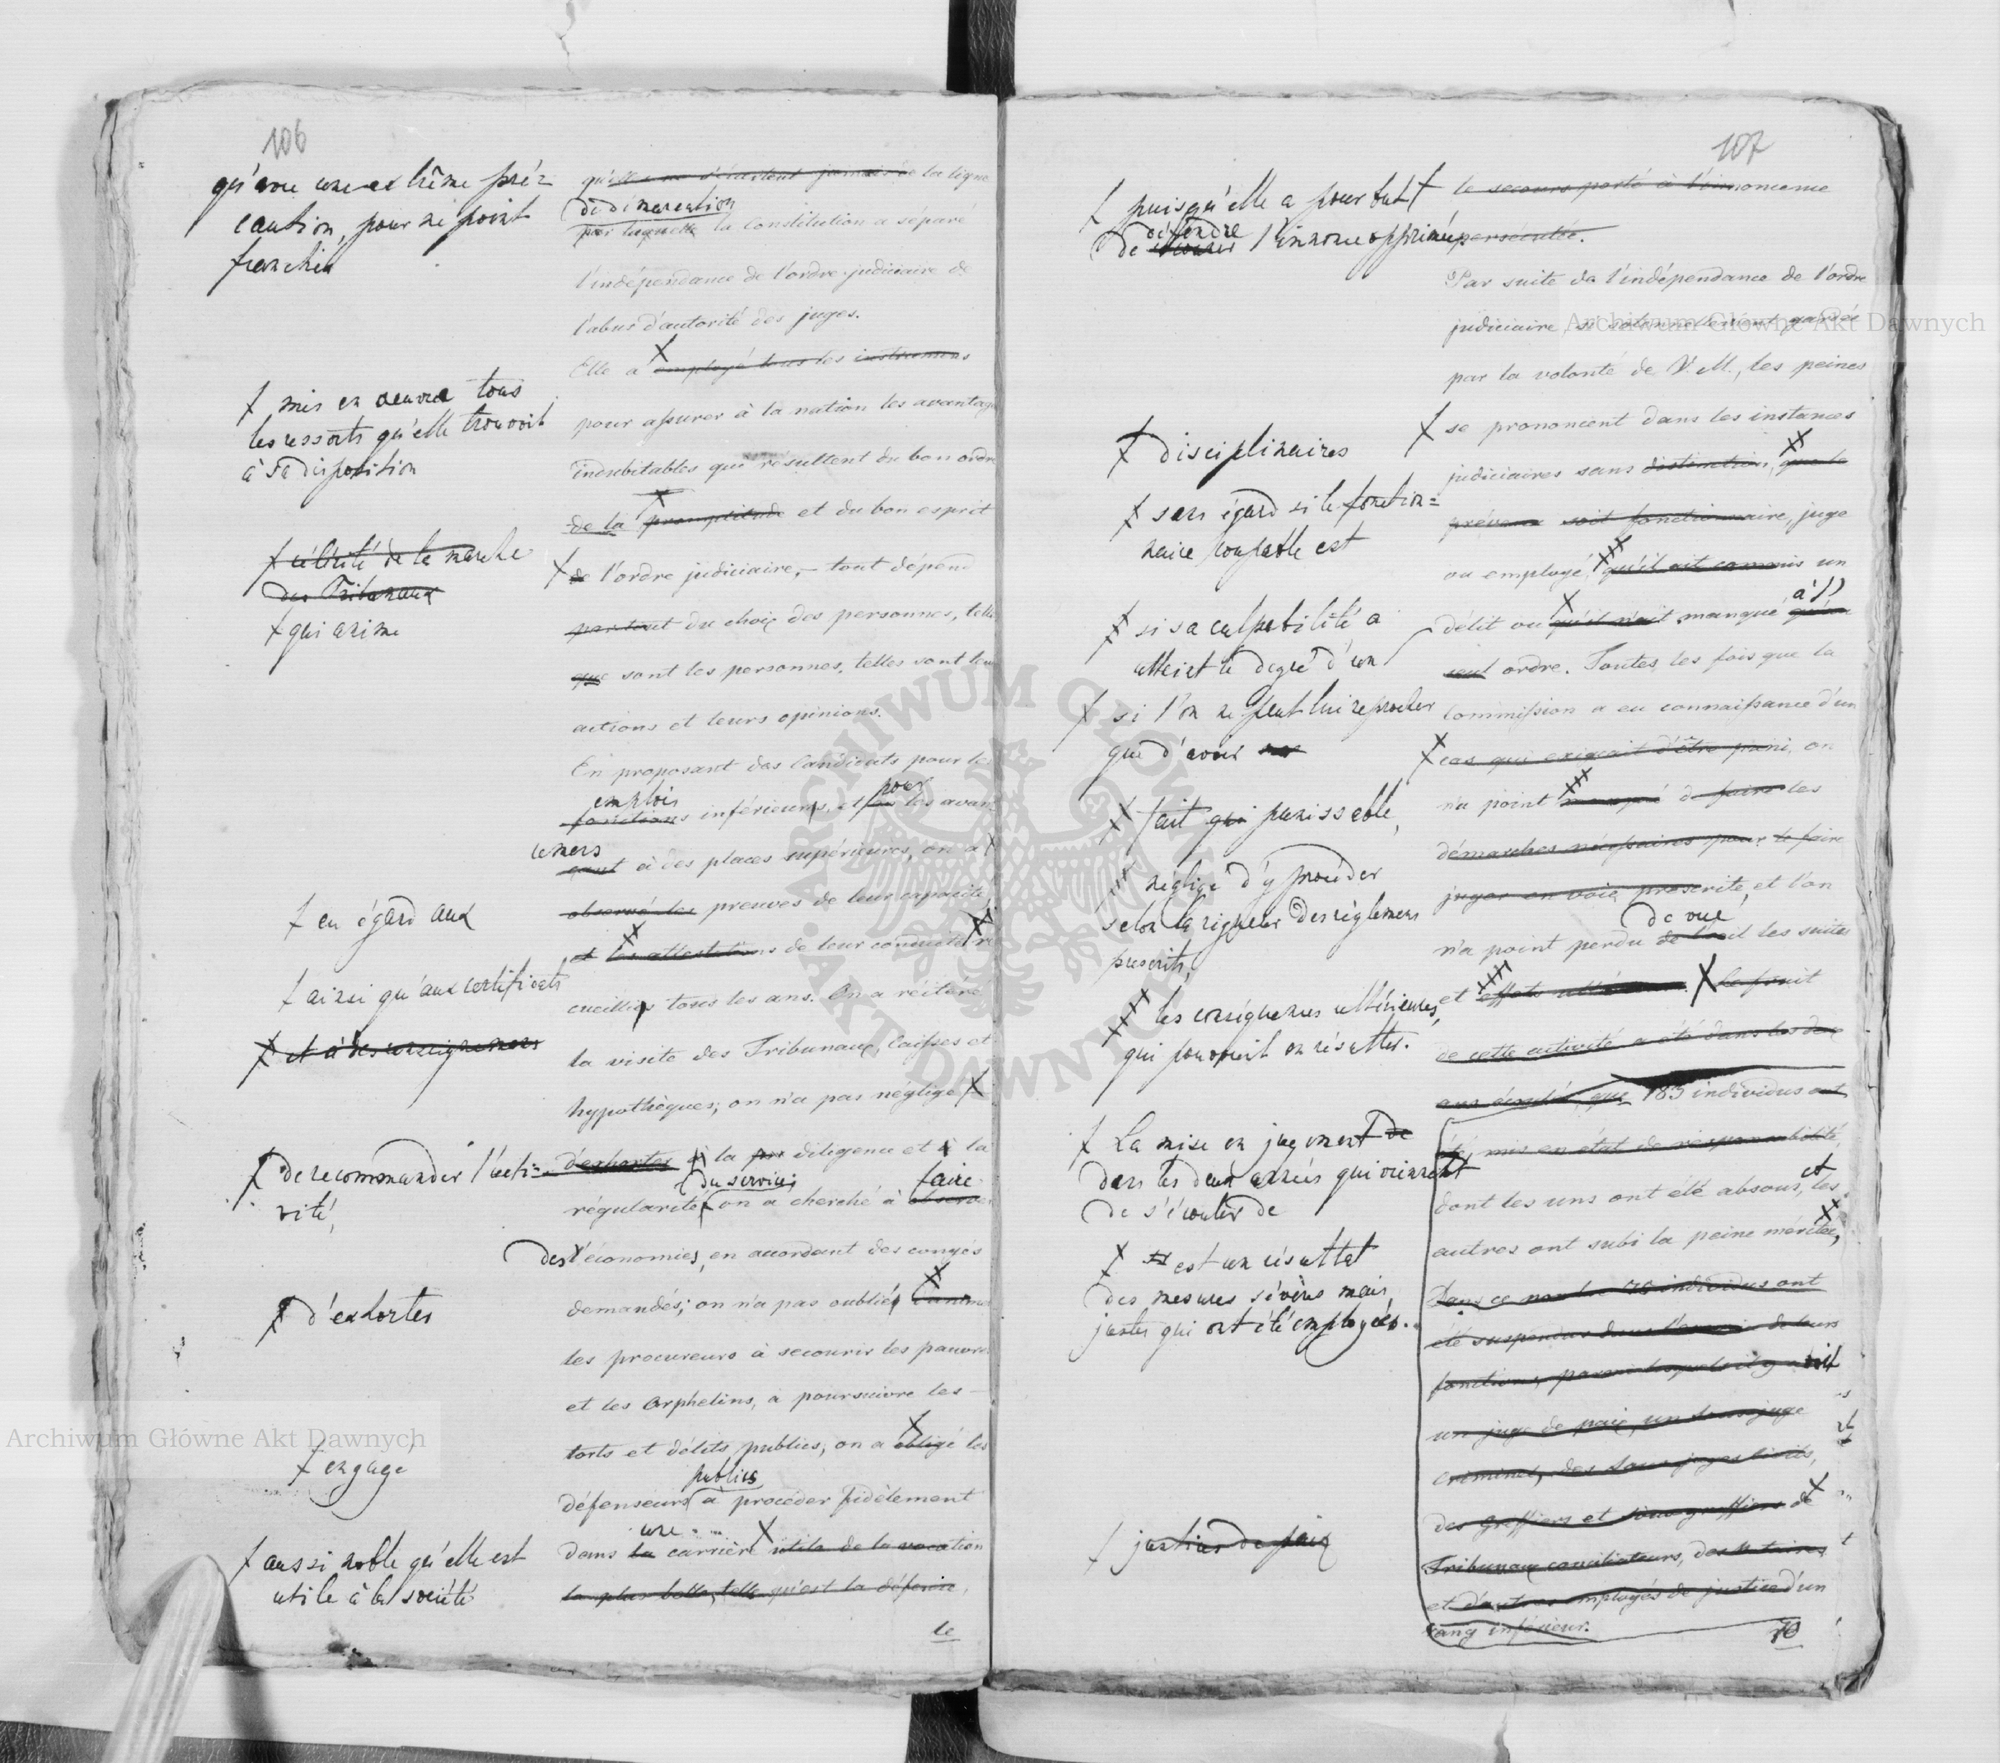 106
qu'avec une extrême pré=
caution, pour ne point
franchir
† mis en oeuvre tous
les ressorts qu'elle trouvoit
à sa disposition
† célérité de la marche
des Tribunaux
† qui anime
† en égard aux
† ainsi qu'aux certificats
† et à des renseignemens
† de recommander l'acti=
vité,
† d'exhorter
† engagé
† aussi noble qu'elle est
utile à la société
qu'elles ne s'écartent jamais de la ligne
de démarcation
par laquelle la Constitution a séparé
l'indépendance de l'ordre judiciaire de
l'abus d'autorité des juges.
Elle a employé tous les instrumens
pour assurer à la nation les avantages
indubitables qui resultent du bon ordre
de la promptitude et du bon esprit
de l'ordre judiciaire, – tout dépend
partout du choix des personnes, telles
que sont les personnes, telles sont leurs
actions et leurs opinions.
En proposant des Candidats pour les
emplois pour
fonctions inférieurs, et les avan
cemens
çant à des places supérieures, on a
observé les preuves de leur capacité,
et les attestations de leur conduite re
cueillis tous les ans. On a réitéré
la visite des Tribunaux, Caisses et
hypothèques; on n'a pas négligé
d'exhorter à la diligence et à la
du service faire
régularité, on a cherché à observer
des l'économies, en accordant des congés
demandés; on n'a pas oublié d'animer
les procureurs à secourir les pauvres
et les Orphelins, à poursuivre les –
torts et délits publics; on a obligé les
publics
défenseurs à procéder fidèlement
une
dans la carrière utile de la vocation
la plus belle, telle qu'est la défense,
le
107
† puisqu'elle a pour but
défendre
de l'innocence opprimée
† disciplinaires
† sans égard si le fonction=
naire coupable est
‡ si sa culpabilité a
atteint le degré d'un
† si l'on ne peut lui reprocher
que d'avoir
‡ fait qui punissable,
négligé d'y procéder
selon la rigueur des règlemens
prescrits,
les conséquences ultérieures,
qui pouvoient en résulter.
† La mise en jugement de
dans les deux années qui viennent
de s'écouler de
† est un résultat
des mesures sévères mais
justes qui ont été employées.
† justices de paix
le secours porté à l'innocence
persécutée.
Par suite de l'indépendance de l'ordre
judiciaire, si solennellement gardée
par la volonté de V. M., les peines
† se prononcent dans les instances
judiciaires sans distinction, que le
prévenu soit fonctionnaire, juge
ou employé, qu'il ait commis un
à l'
délit ou qu'il n'ait manqué qu'au
seul ordre. Toutes les fois que la
Commission a eu connaissance d'un
† cas qui exigeait d'être puni, on
n'a point manqué de faire les
démarches nécessaires pour le faire
juger en voie prescrite, et l'on
de vue
n'a point perdu de l'oeil les suites
et effets ultérieurs. le fruit
de cette activité a été dans les deux
ans écoulés, que 183 individus ont
été mis en état de responsabilité,
et
dont les uns ont été absous, les
autres ont subi la peine méritée,
Dans ce nombre 70 individus ont
été suspendus dans l'exercice de leurs
fonctions, parmi lesquels il y avoit
un juge de paix, un sousjuge
criminel, des sousjuges civils,
des Greffiers et sous greffiers de
Tribunaux conciliateurs, des Notaires
et d'autres employés de justice d'un
rang inférieur.
70
Archiwum Główne Akt Dawnych
Archiwum Główne Akt Dawnych
ARCHIWUM GŁÓWNE
AKT DAWNYCH